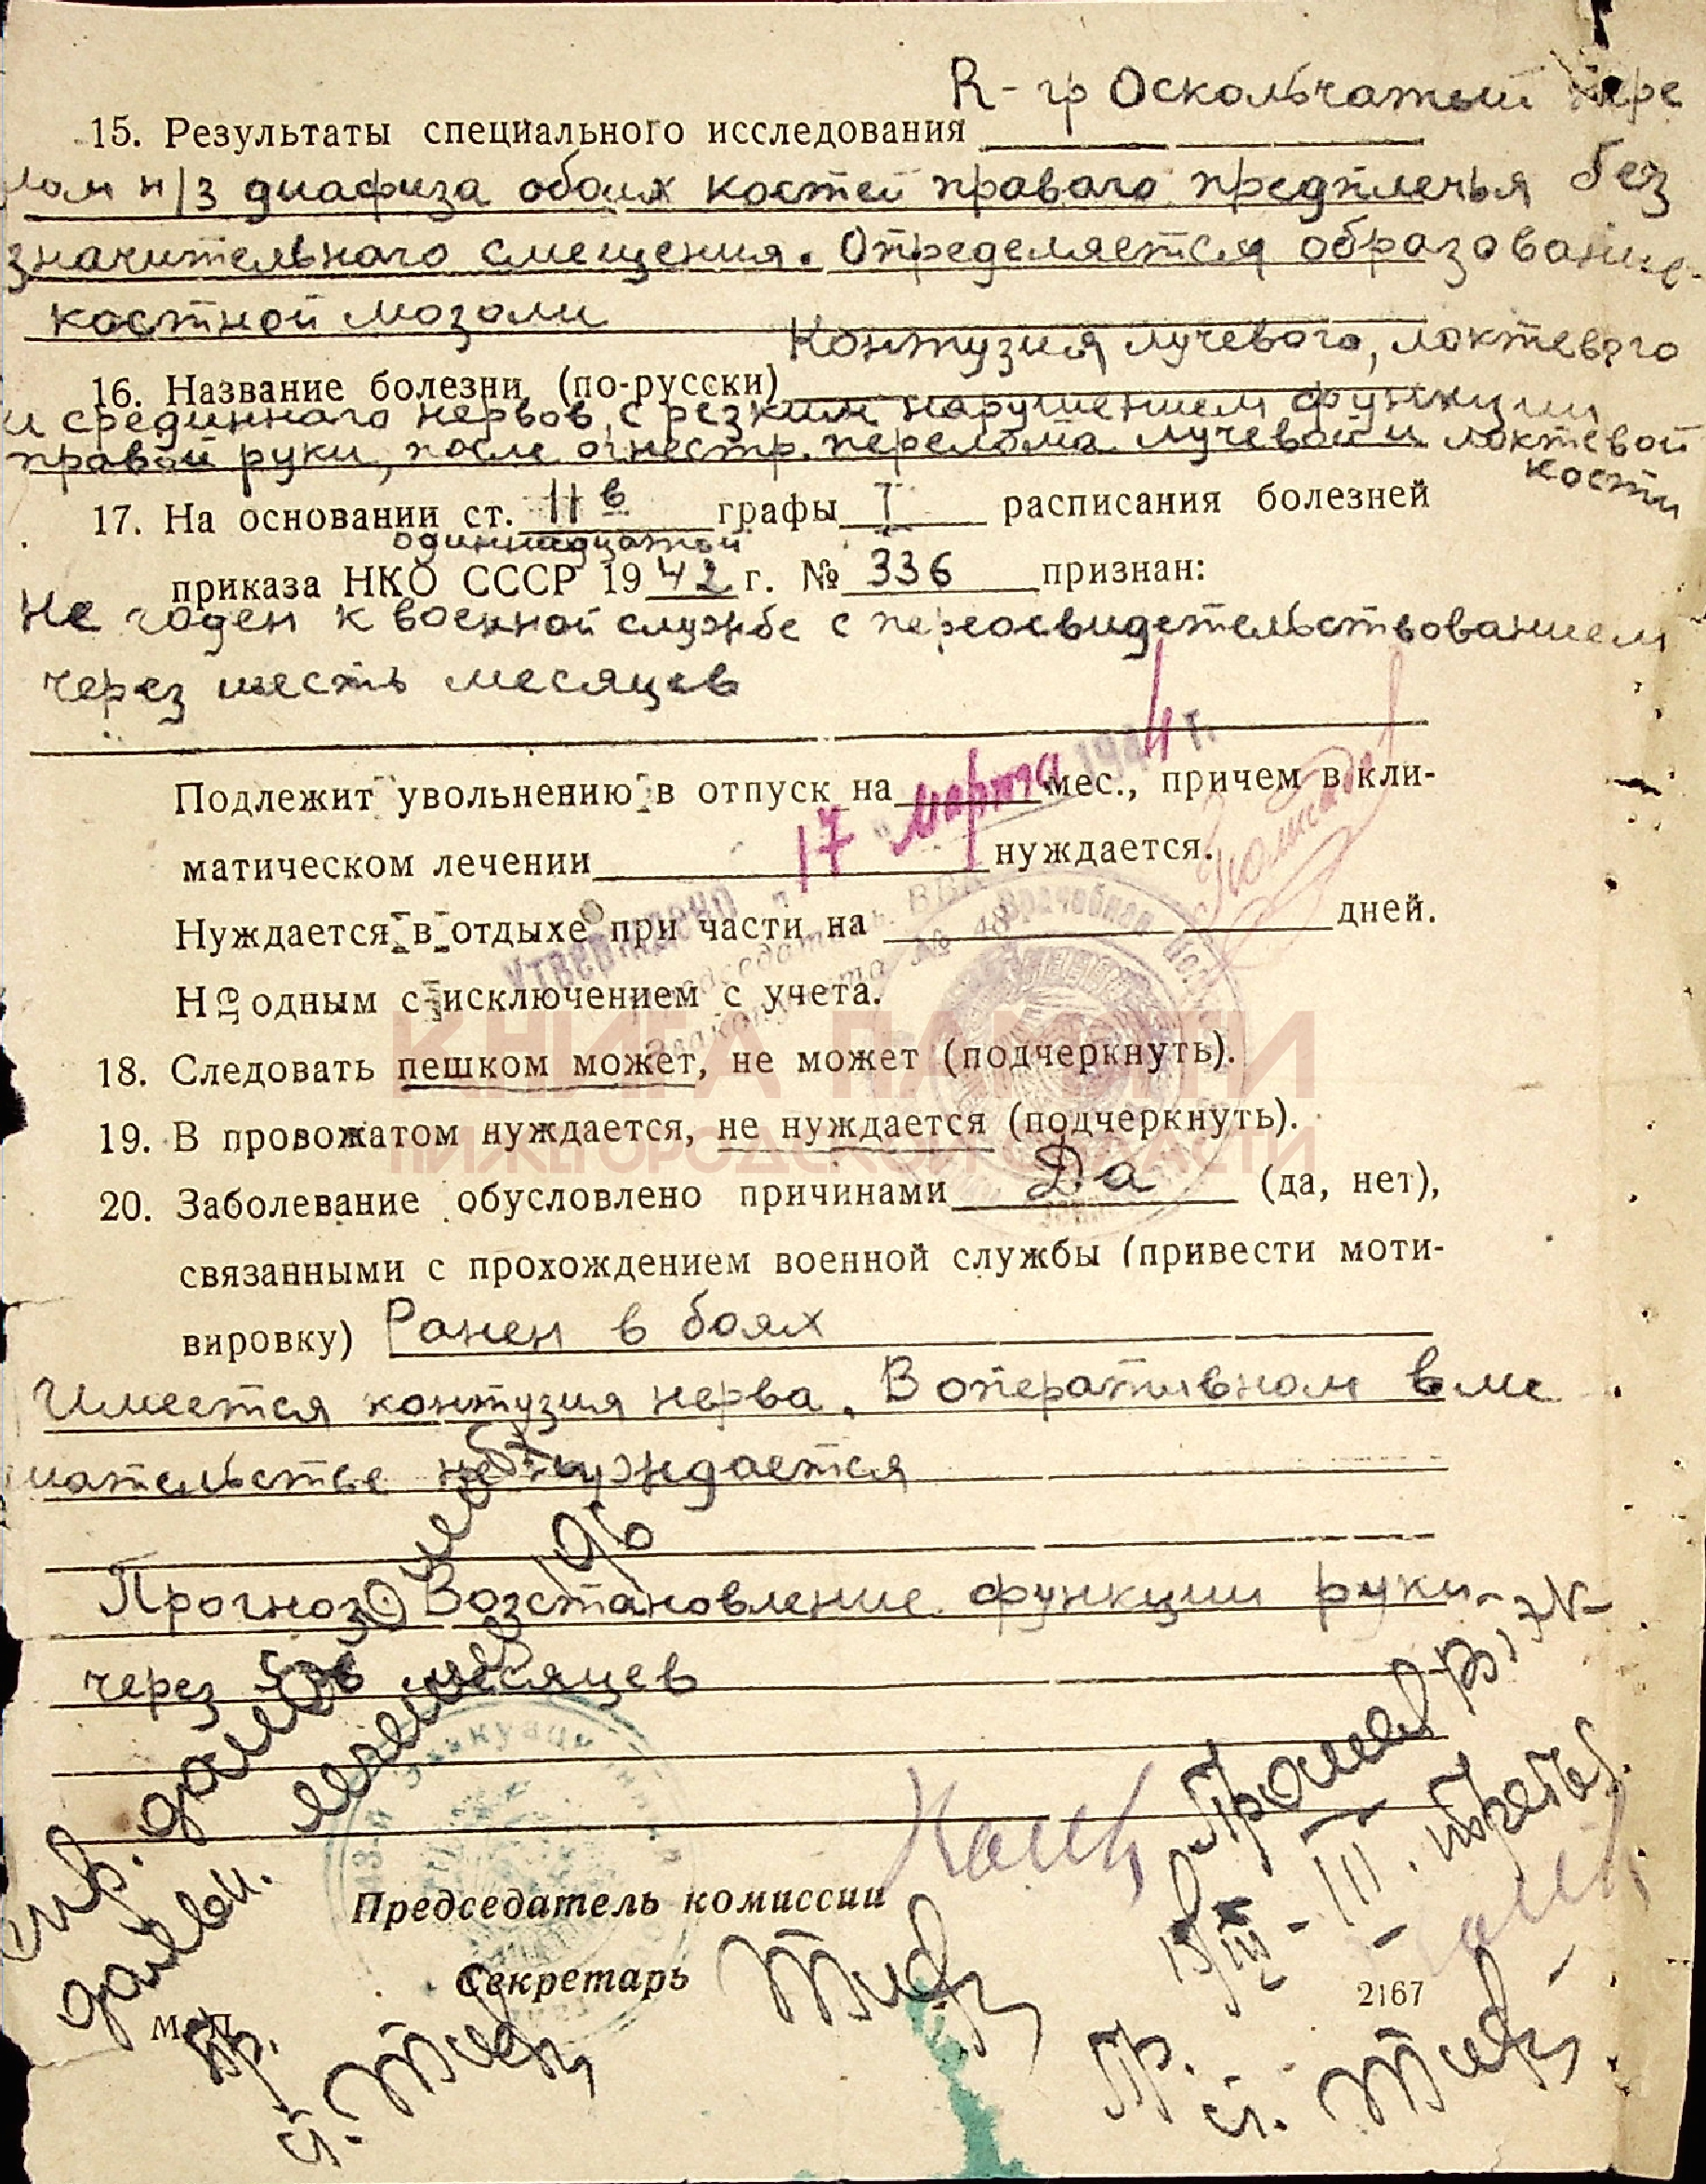 R-гр Оскольчатый пере
15. Результаты специального исследования
лом н/з диафиза обоих костей правого предплечья без
значительного смещения. Определяется образование
костной мозоли
Контузия лучевого, локтевого
16. Название болезни (по-русски)
и срединного нервов с резким нарушением функции
правой руки, после огнестр. перелома лучевой и локтевой
кости
17. На основании ст. 11 в графы I расписания болезней
одиннадцатой
приказа НКО СССР 1942 г. № 336 признан:
Не годен к военной службе с переосвидетельствованием
через шесть месяцев
Подлежит увольнению в отпуск на мес., причем в кли-
матическом лечении нуждается.
Утверждено "17" марта 1944 г.
Председатель ВВК
Эвакопункта № 48
Нуждается в отдыхе при части на дней.
Негодным с исключением с учета.
КНИГА ПАМЯТИ
НИЖЕГОРОДСКОЙ ОБЛАСТИ
18. Следовать пешком может, не может (подчеркнуть).
19. В провожатом нуждается, не нуждается (подчеркнуть).
20. Заболевание обусловлено причинами Да (да, нет),
связанными с прохождением военной службы (привести моти-
вировку) Ранен в боях
Имеется контузия нерва. В оперативном вме
шательстве не нуждается
Прогноз: Возстановление функции руки
через 5-6 месяцев
Председатель комиссии
Секретарь
М. П.
2167